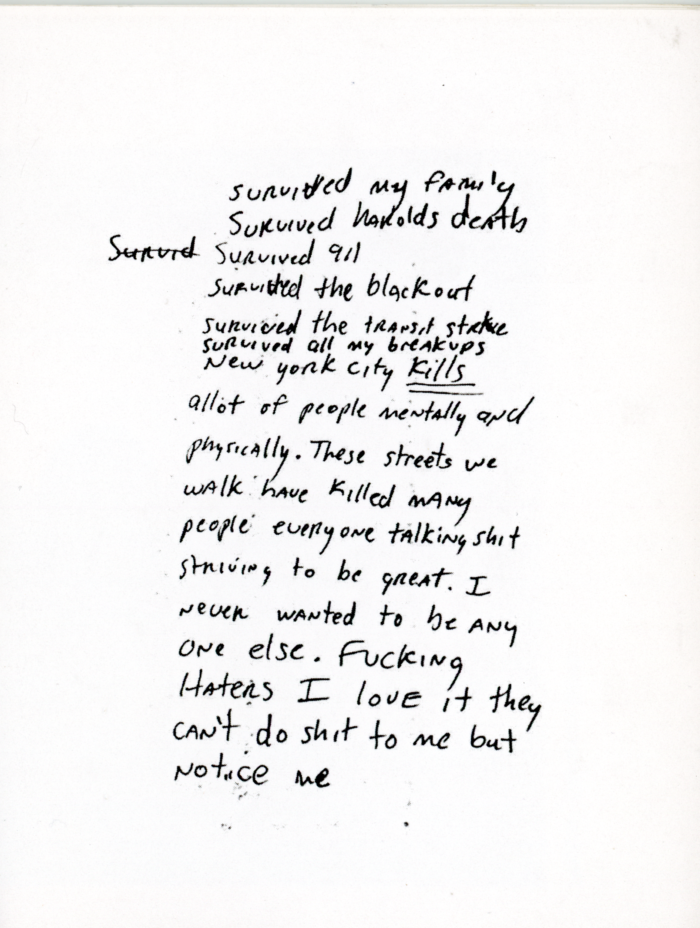 survived my family
Survived harolds death
Survid Survived 911
survived the blackout
survived the transit strike
survived all my breakups
New york city Kills
allot of people mentally and
physically. These streets we
walk have killed many
people everyone talking shit
striving to be great. I
never wanted to be any
one else. Fucking
Haters I love it they
can't do shit to me but
notice me